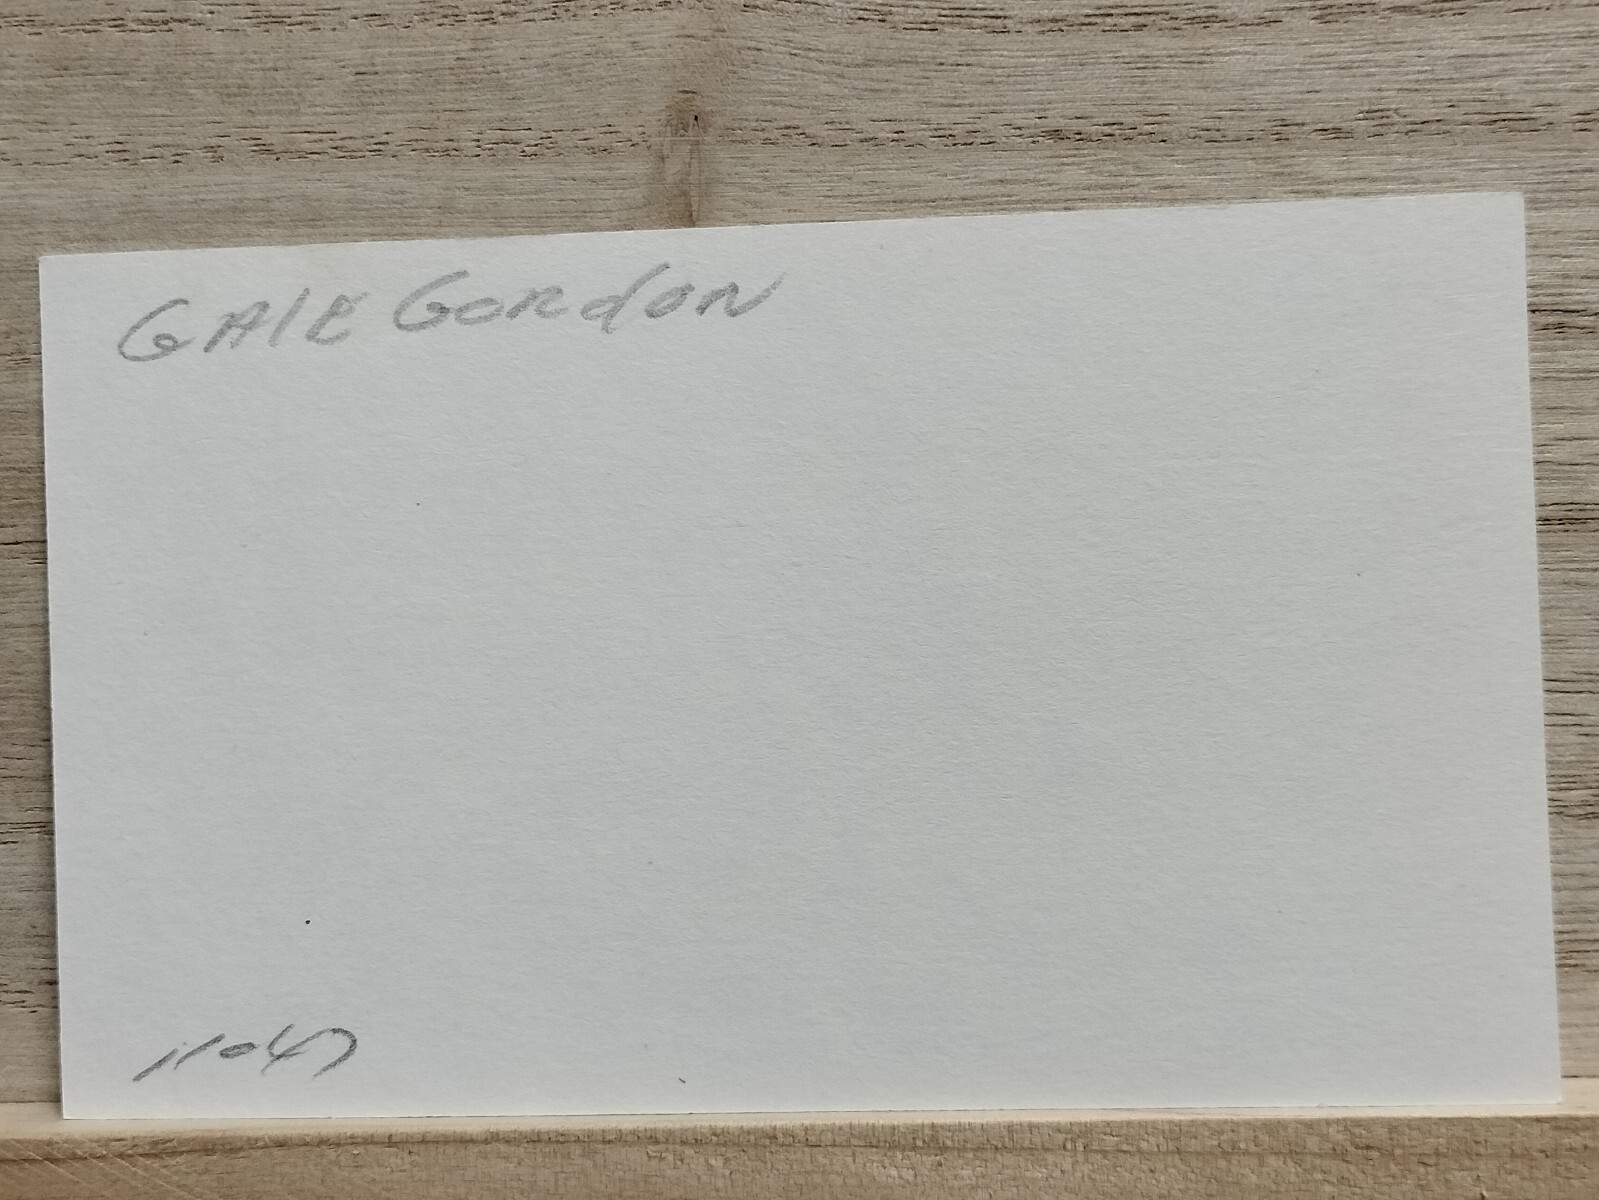 GAlE GORdON
11-47